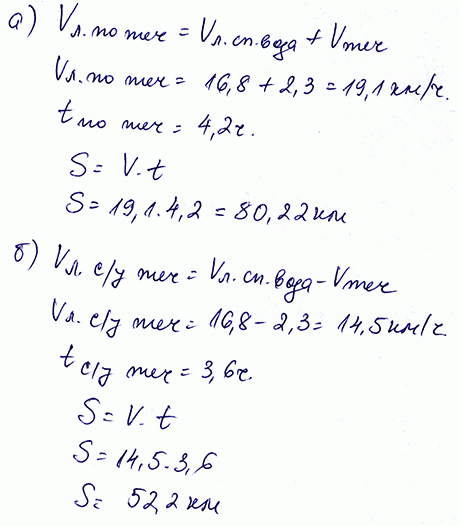 а) Vл.по теч = Vл.сп.вода + Vтеч
Vл.по теч = 16,8 + 2,3 = 19,1 км/ч.
t по теч = 4,2ч.
S = V · t
S = 19,1 · 4,2 = 80,22 км
б) Vл. с/у теч = Vл.сп.вода - Vтеч
Vл. с/у теч = 16,8 - 2,3 = 14,5 км/ч
t с/у теч = 3,6ч.
S = V · t
S = 14,5 · 3,6
S = 52,2 км